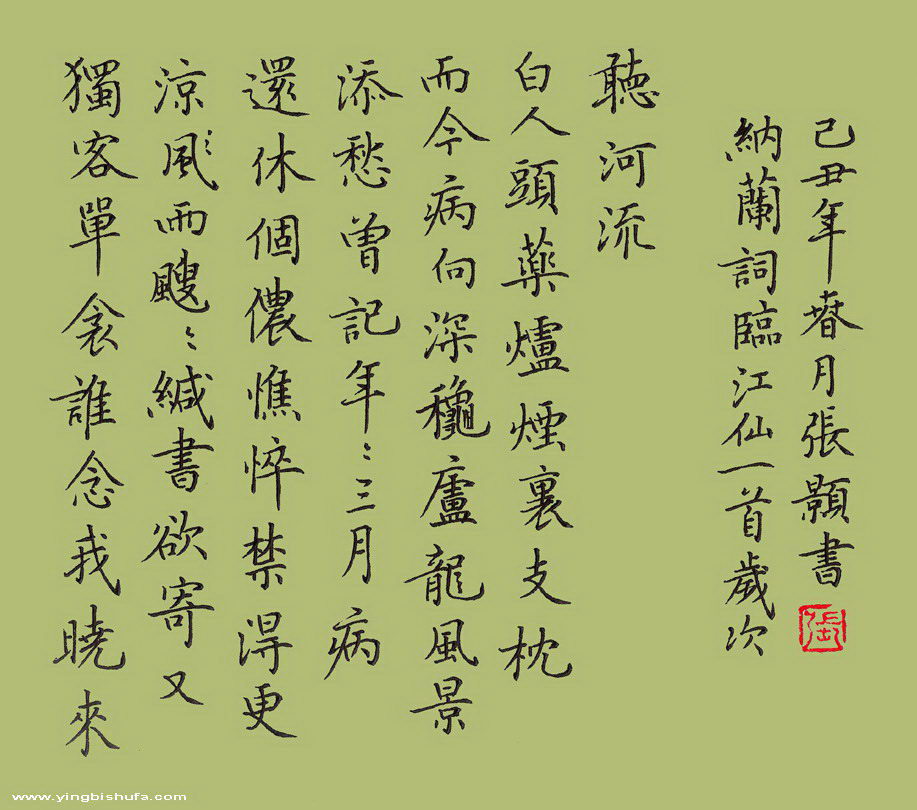 獨客單衾誰念我曉來
涼風雨颼〻緘書欲寄又
還休個儂憔悴禁得更
添愁曾記年〻三月病
而今病向深龝盧龍風景
白人頭藥爐煙裏支枕
聽河流
納蘭詞臨江仙一首歲次
己丑年春月張顥書
張
www.yingbishufa.com